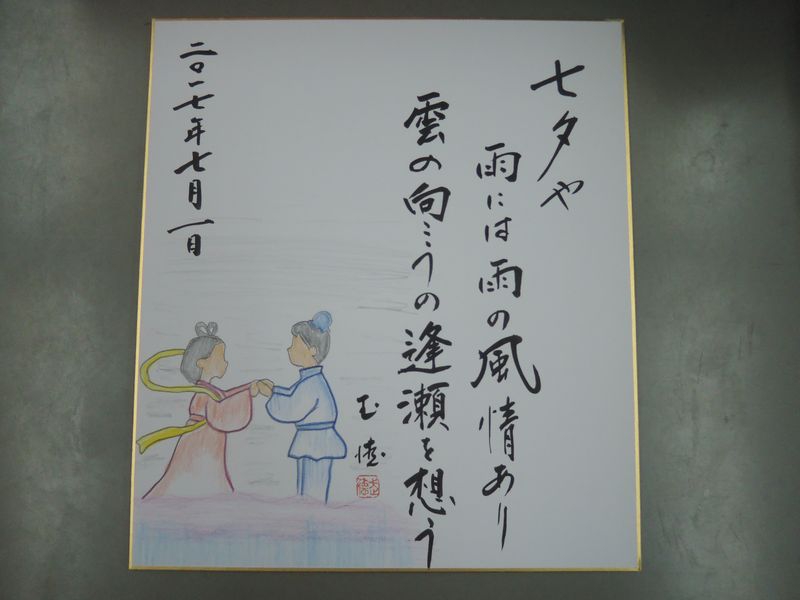 七夕や
雨には雨の風情あり
雲の向こうの逢瀬を想う
二〇一七年七月一日